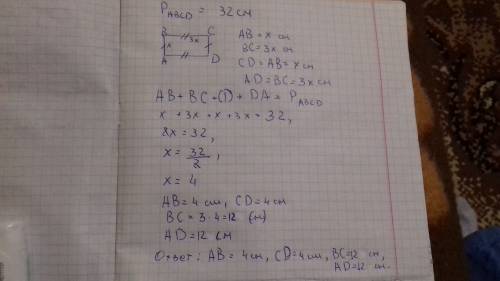 P ABCD = 32 см
B 3x C
x
A D
AB = x см
BC = 3x см
CD = AB = x см
AD = BC = 3x см
AB + BC + CD + DA = P ABCD
x + 3x + x + 3x = 32,
8x = 32,
x = 32/8,
x = 4
AB = 4 см, CD = 4 см
BC = 3 · 4 = 12 (см)
AD = 12 см
Ответ: AB = 4 см, CD = 4 см, BC = 12 см,
AD = 12 см.